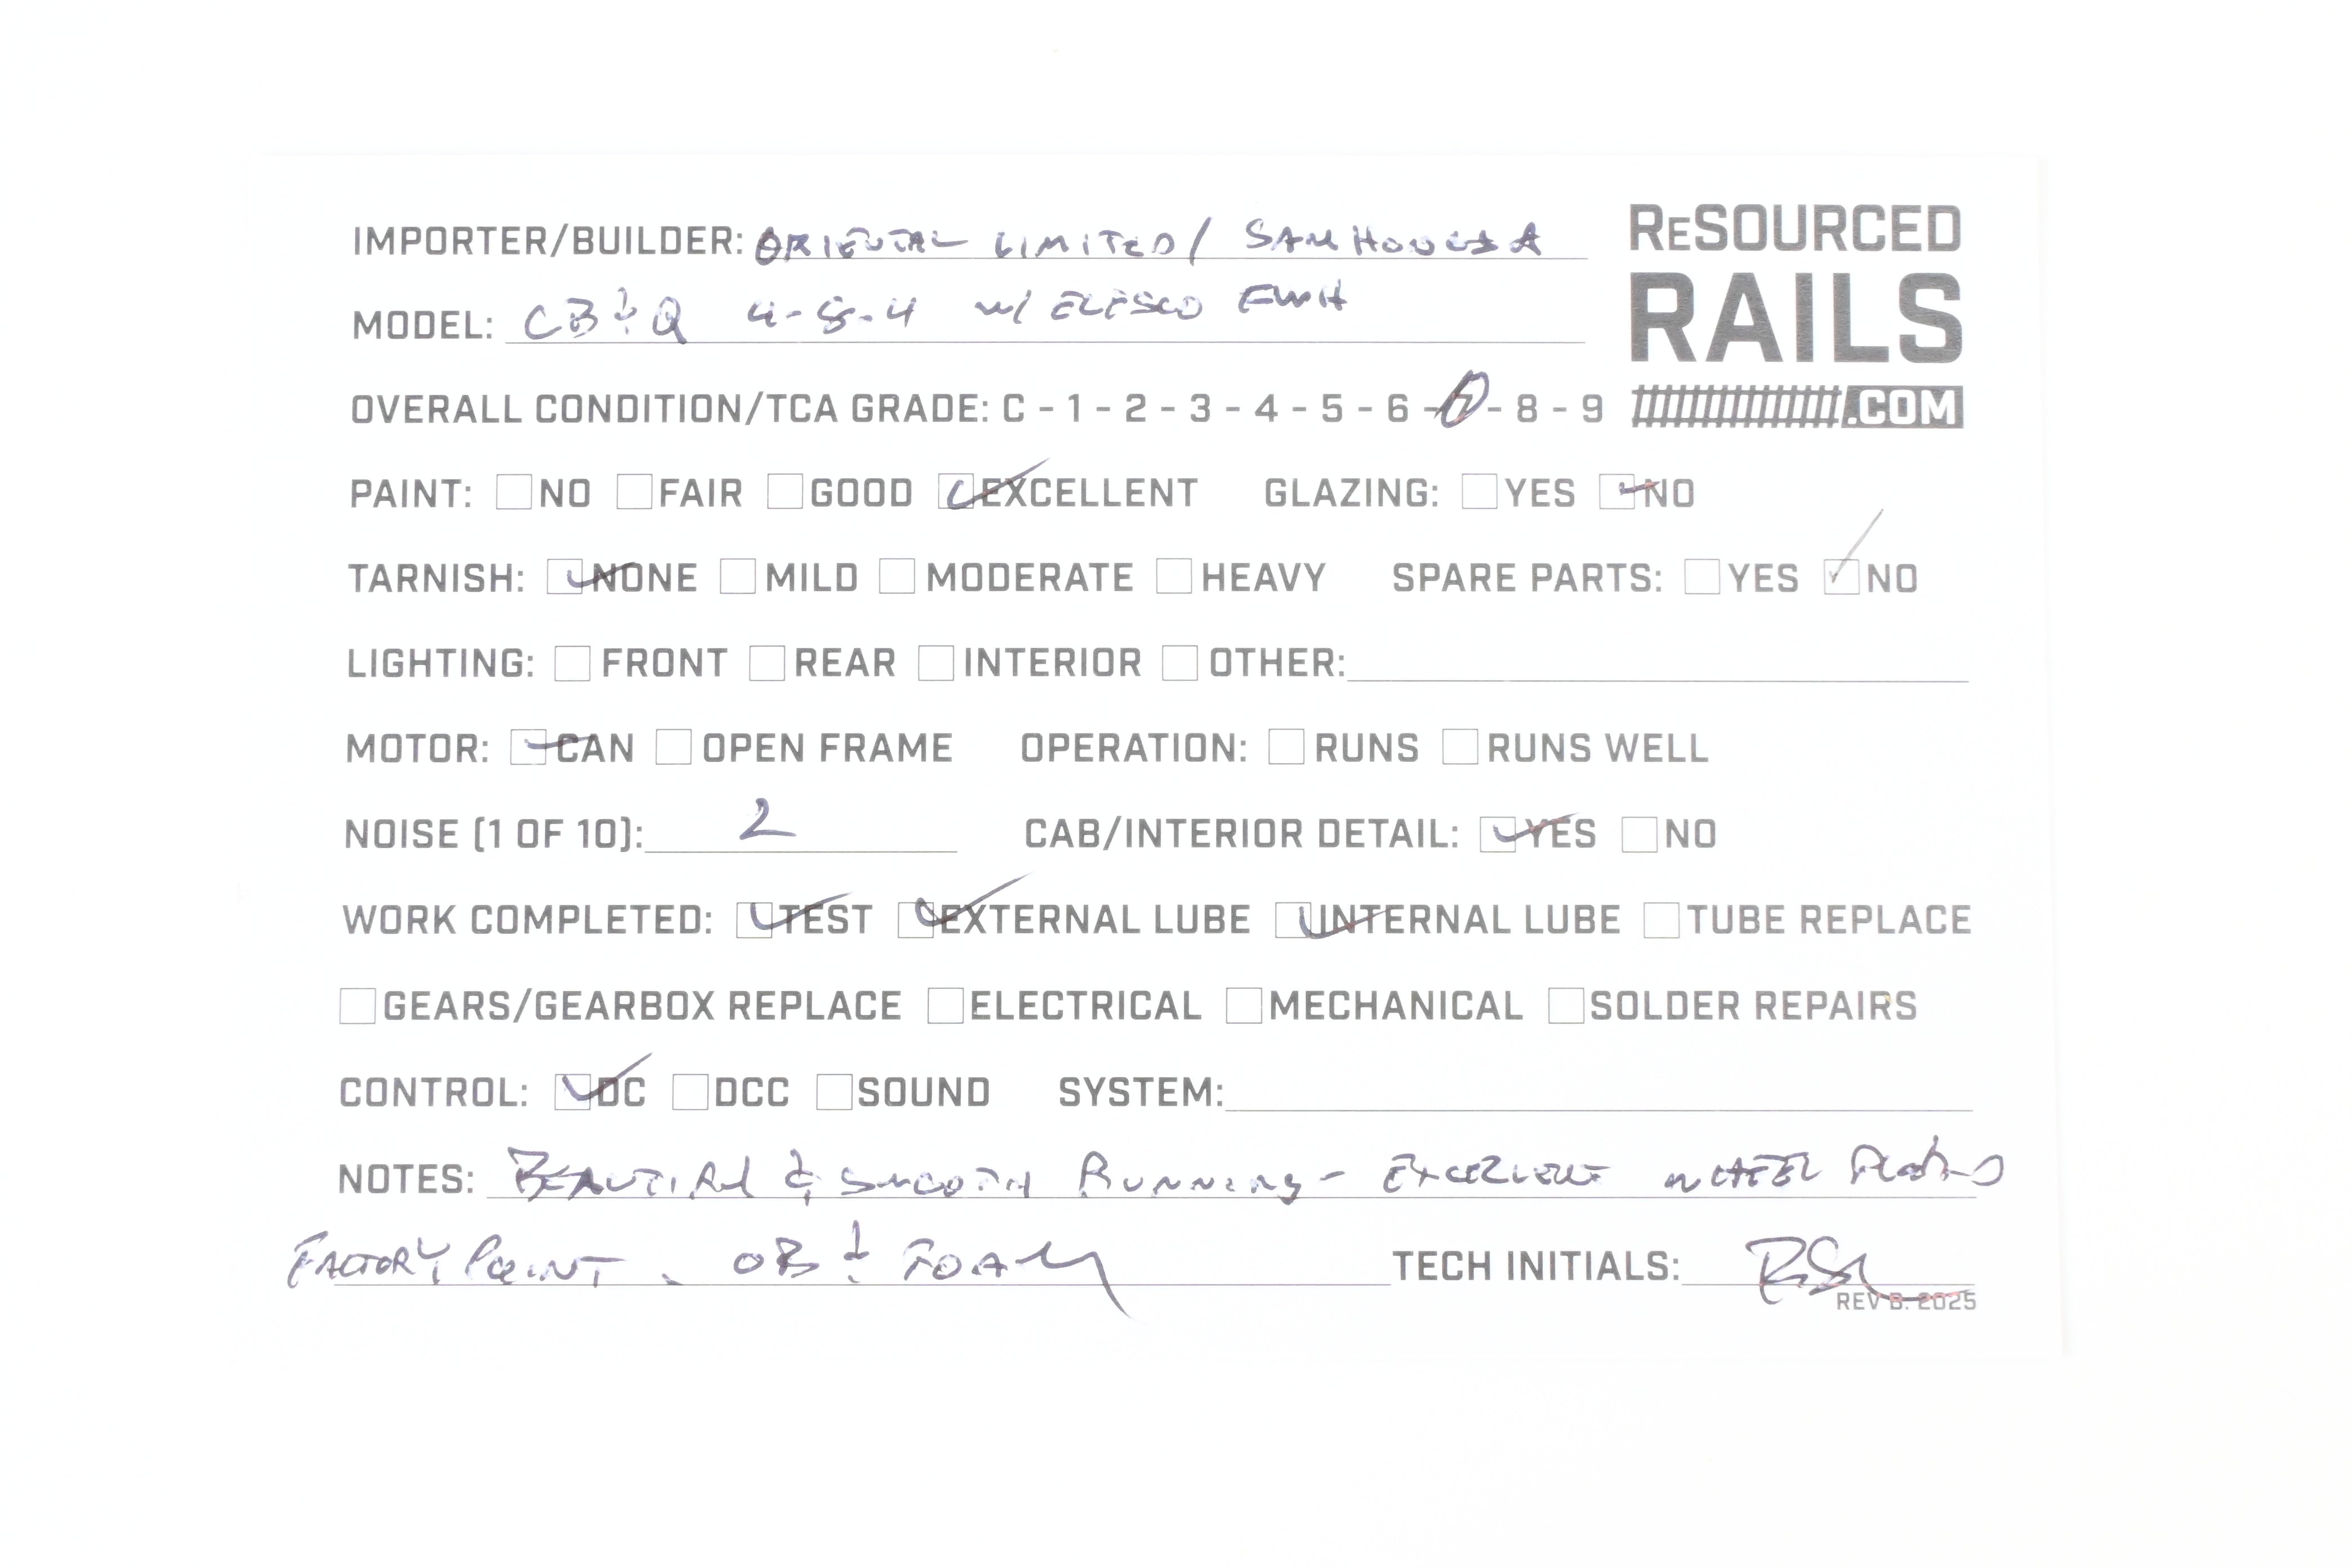 IMPORTER/BUILDER: ORIENTAL LIMITED/ SAMHONGSA
RESOURCED
RAILS
.COM
MODEL: CB&Q 4-8-4 w/ ELESCO FWH
OVERALL CONDITION/TCA GRADE: C - 1 - 2 - 3 - 4 - 5 - 6 - 7 - 8 - 9
PAINT: NO FAIR GOOD EXCELLENT GLAZING: YES NO
TARNISH: NONE MILD MODERATE HEAVY SPARE PARTS: YES NO
LIGHTING: FRONT REAR INTERIOR OTHER:
MOTOR: CAN OPEN FRAME OPERATION: RUNS RUNS WELL
NOISE (1 OF 10): 2 CAB/INTERIOR DETAIL: YES NO
WORK COMPLETED: TEST EXTERNAL LUBE INTERNAL LUBE TUBE REPLACE
GEARS/GEARBOX REPLACE ELECTRICAL MECHANICAL SOLDER REPAIRS
CONTROL: DC DCC SOUND SYSTEM:
NOTES: BEAUTIFUL & SMOOTH RUNNING - EXCELLENT
FACTORY PAINT. OB & FOAM TECH INITIALS:
REV B. 2025